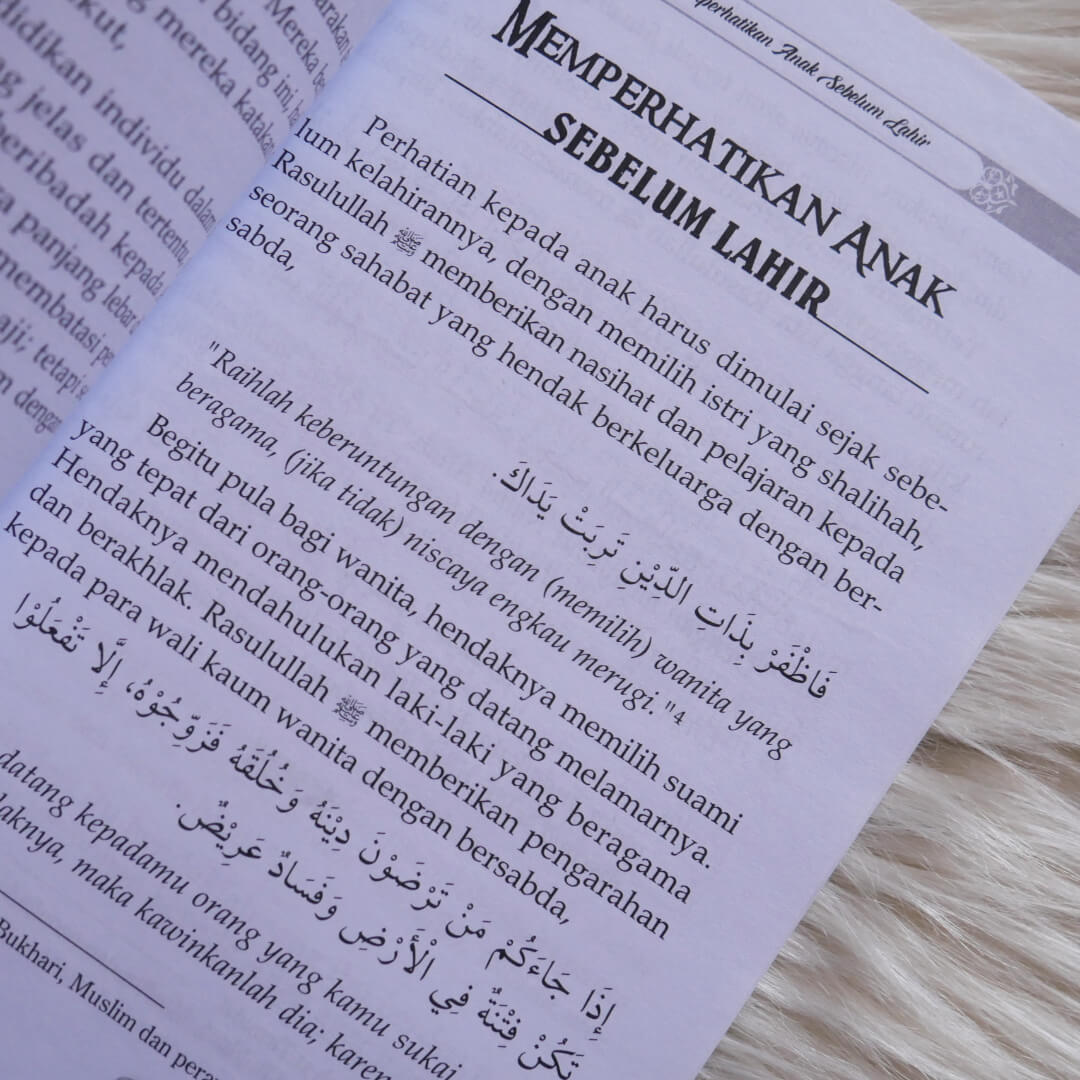 arakan
Mereka be
bidang ini, ba
kut, g mereka kataka
didikan individu dalam
g jelas dan tertentu,
eribadah kepada
a panjang lebar d
membatasi pe
aji; tetapi s
m dengan
perhatikan Anak Sebelum Lahir
MEMPERHATIKAN ANAK
SEBELUM LAHIR
Perhatian kepada anak harus dimulai sejak sebe-
lum kelahirannya, dengan memilih istri yang shalihah,
Rasulullah ﷺ memberikan nasihat dan pelajaran kepada
seorang sahabat yang hendak berkeluarga dengan ber-
sabda,
فَاظْفَرْ بِذَاتِ الدِّيْنِ تَرِبَتْ يَدَاكَ.
"Raihlah keberuntungan dengan (memilih) wanita yang
beragama, (jika tidak) niscaya engkau merugi."4
Begitu pula bagi wanita, hendaknya memilih suami
yang tepat dari orang-orang yang datang melamarnya.
Hendaknya mendahulukan laki-laki yang beragama
dan berakhlak. Rasulullah ﷺ memberikan pengarahan
kepada para wali kaum wanita dengan bersabda,
إِذَا جَاءَكُمْ مَنْ تَرْضَوْنَ دِيْنَهُ وَخُلُقَهُ فَزَوِّجُوْهُ، إِلَّا تَفْعَلُوْا
تَكُنْ فِتْنَةٌ فِي الْأَرْضِ وَفَسَادٌ عَرِيْضٌ.
datang kepadamu orang yang kamu sukai
laknya, maka kawinkanlah dia; karen
Bukhari, Muslim dan pera